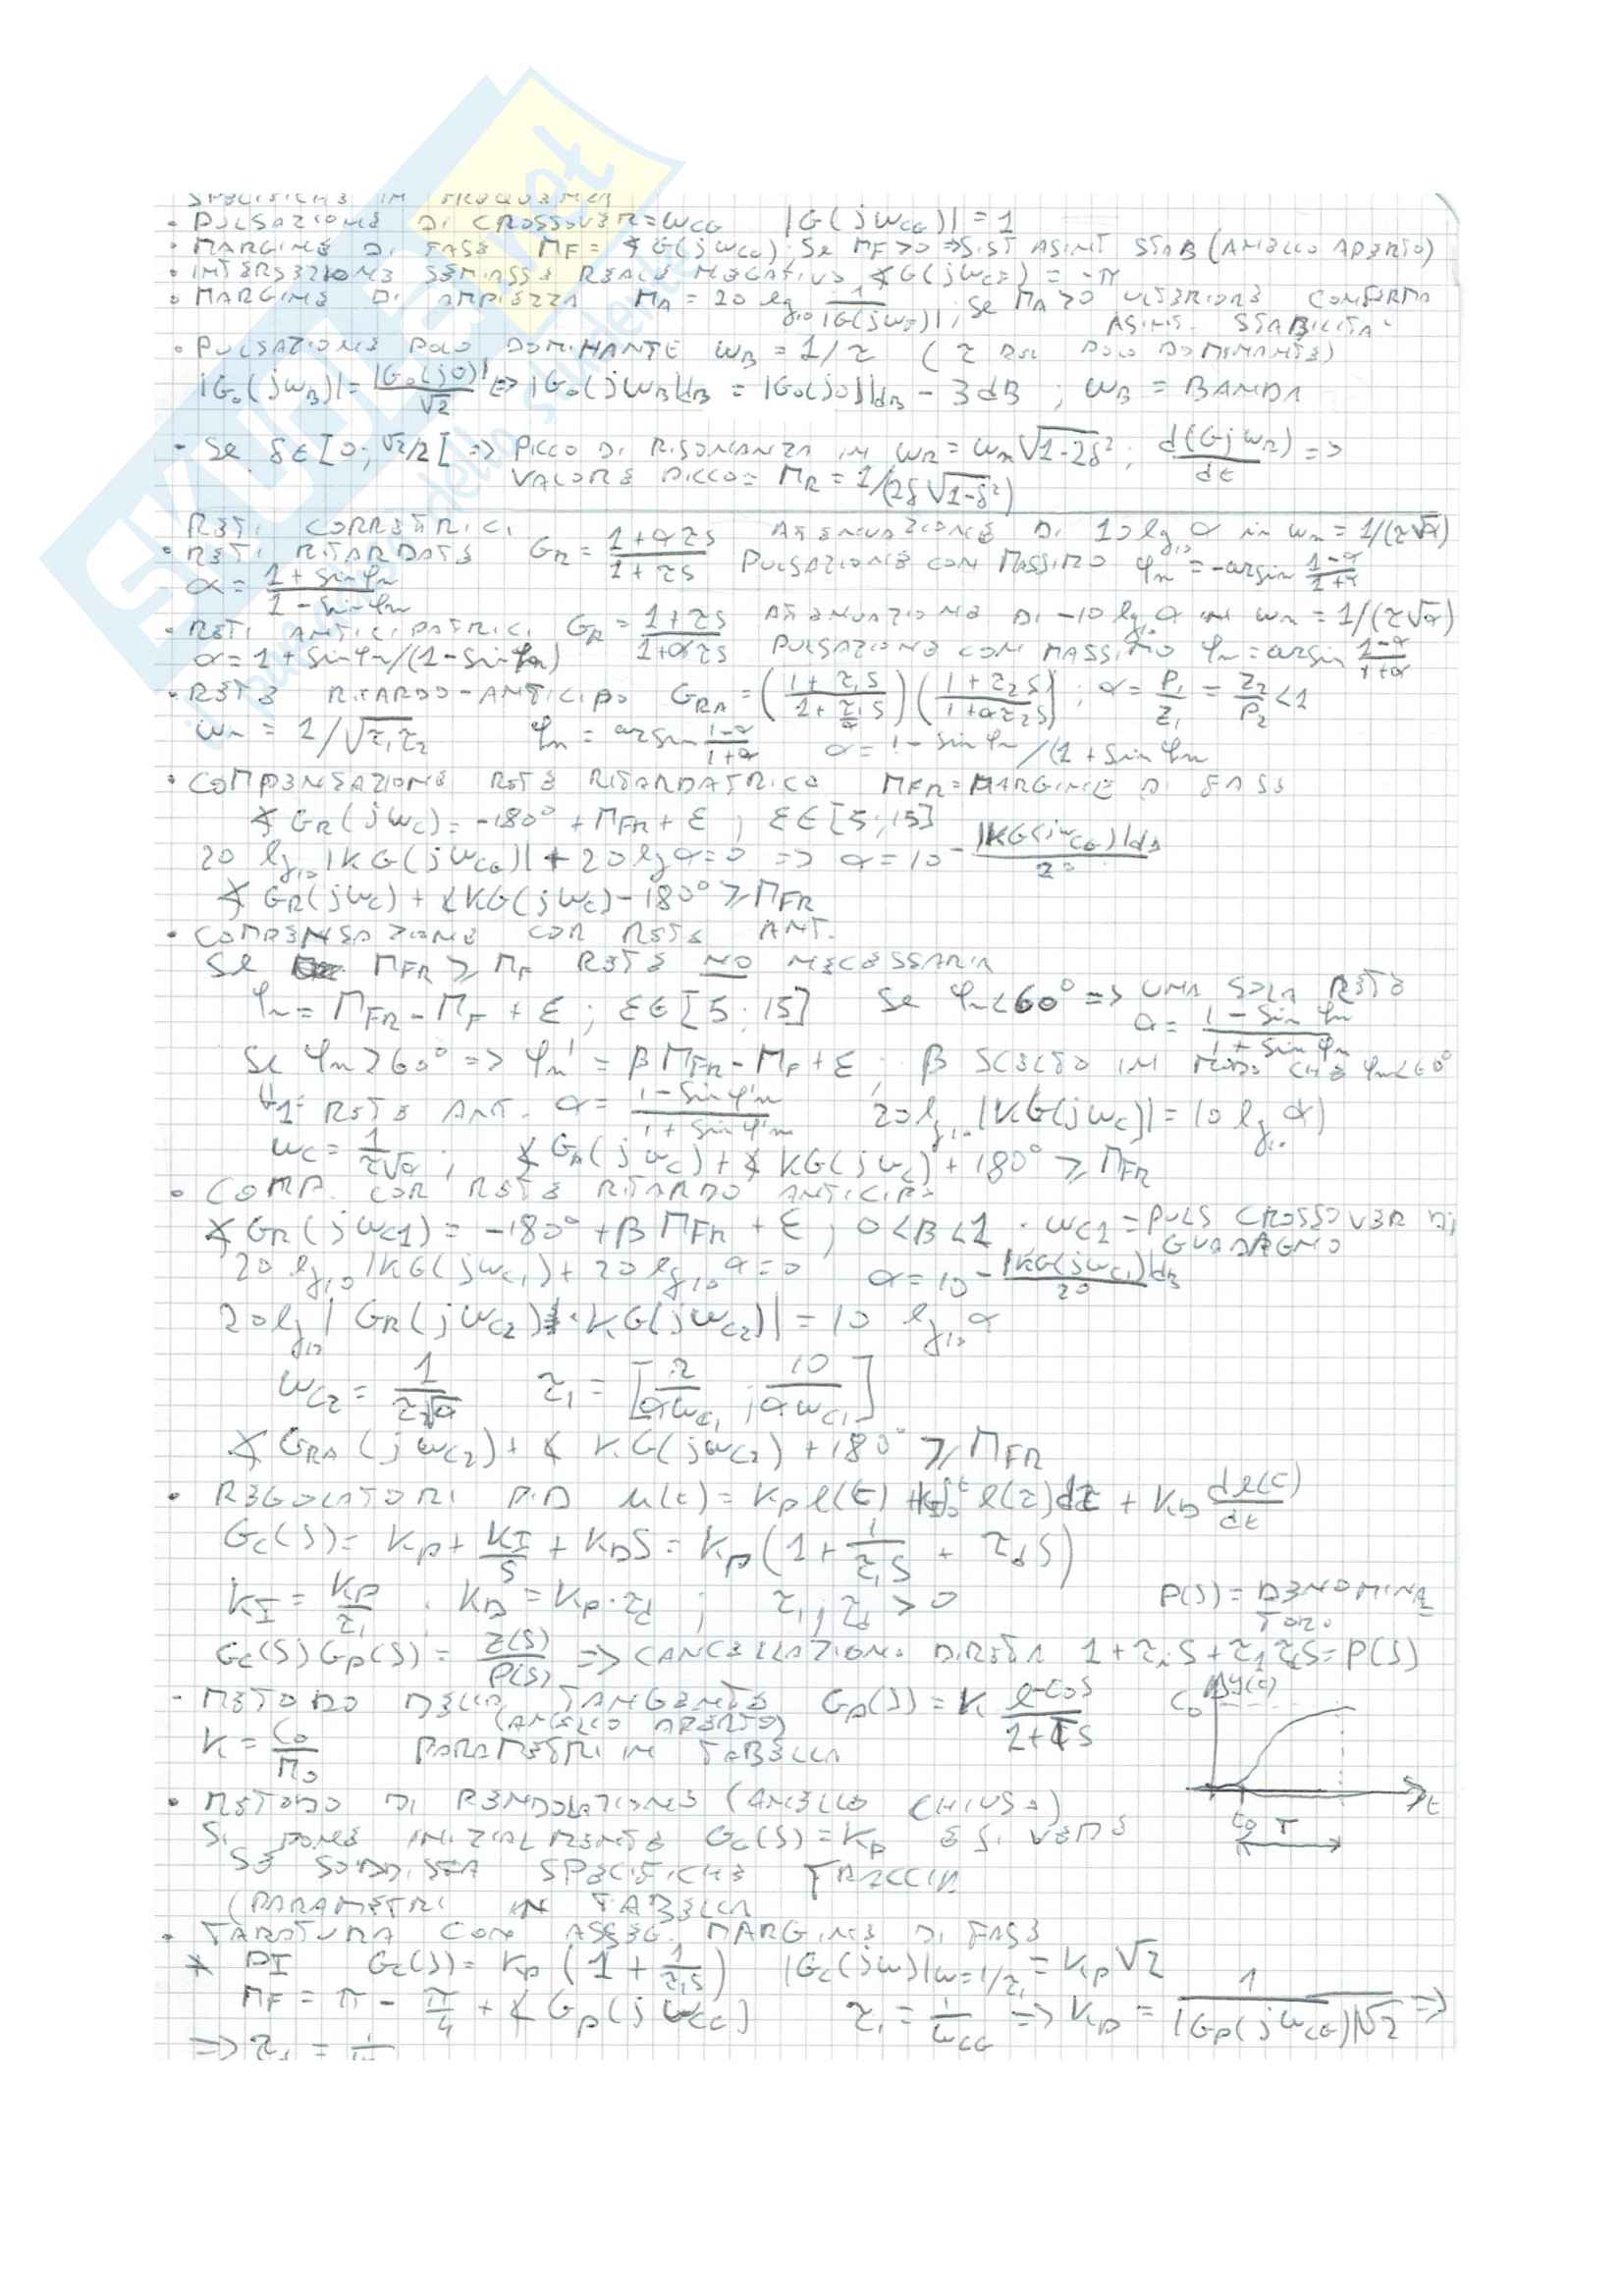 SPECIFICHE IN FREQUENZA
• PULSAZIONE DI CROSSOVER = ωCG |G(jωCG)| = 1
• MARGINE DI FASE MF = ∡G(jωCG); Se MF>0 ⇒ SIST ASINT STAB (ANELLO APERTO)
• INTERSEZIONE SEMIASSE REALE NEGATIVO ∡G(jωCF) = -π
• MARGINE DI AMPIEZZA MA = 20 lg10 1/|G(jωF)|; Se MA>0 ULTERIORE CONFERMA
ASINT. STABILITA'
• PULSAZIONE POLO DOMINANTE ωB = 1/τ (τ DEL POLO DOMINANTE)
|G0(jωB)| = |G0(j0)|/√2 ⇒ |G0(jωB)|dB = |G0(j0)|dB - 3dB ; ωB = BANDA
- Se δ∈[0;√2/2[ ⇒ PICCO DI RISONANZA IN ωR = ωn√1-2δ²; d(GjωR)/dt =>
VALORE PICCO = MR = 1/(2δ√1-δ²)
RETI CORRETTRICI ATTENUAZIONE DI 10 lg10 α in ωn = 1/(τ√α)
• RETI RITARDATE GR = 1+ατs/1+τs PULSAZIONE CON MASSIMO φn = -arsin 1-α/1+α
α = 1+sinφn/1-sinφn
• RETI ANTICIPATRICI GA = 1+τs/1+ατs ATTENUAZIONE DI -10 lg10 α in ωn = 1/(τ√α)
α = 1+sinφn/(1-sinφn) PULSAZIONE CON MASSIMO φn = arsin 1-α/1+α
• RETE RITARDO-ANTICIPO GRA = (1+τ1s/1+τ1/α s)(1+τ2s/1+ατ2s); α = P1/Z1 = Z2/P2 <1
ωn = 1/√τ1τ2 φn = arsin 1-α/1+α α = 1-sinφn/(1+sinφn
• COMPENSAZIONE RETE RITARDATRICE MFR = MARGINE DI FASE
∡GR(jωC) = -180° + MFR + ε ; ε∈[5;15]
20 lg10 |KG(jωCG)| + 20 lg α = 0 => α = 10 - |KG(jωCG)|dB/20
∡GR(jωC) + ∡KG(jωC) - 180° ⩾ MFR
• COMPENSAZIONE CON RETE ANT.
Se MFR ⩾ MF RETE NO NECESSARIA
φn = MFR - MF + ε ; ε∈[5;15] Se φn<60° => UNA SOLA RETE
α = 1-sinφn/1+sinφn
Se φn>60° => φn' = βMFR - MF + ε ; β SCELTO IN MODO CHE φn<60°
1ª RETE ANT. α = 1-sinφ'n/1+sinφ'n 20 lg10 |KG(jωC)| = 10 lg10 α)
ωC = 1/τ√α ; ∡GA(jωC) + ∡KG(jωC) + 180° ⩾ MFR
• COMP. CON RETE RITARDO ANTICIPO
∡GR(jωC1) = -180° + βMFR + ε ; 0<β<1 . ωC2 = PULS CROSSOVER DI
GUADAGNO
20 lg10 |KG(jωC1) + 20 lg10 α = 0 α = 10 - |KG(jωC1)|dB/20
20 lg10 |GR(jωC2)·KG(jωC2)| = 10 lg10 α
ωC2 = 1/τ2√α τ1 = [2/αωC1 ; 10/αωC1]
∡GRA(jωC2) + ∡KG(jωC2) + 180° ⩾ MFR
• REGOLATORI PID u(t) = KP e(t) + KI∫0t e(τ)dτ + KD de(t)/dt
GC(S) = KP + KI/S + KDS = KP(1 + 1/τiS + τdS)
KI = KP/τi . KD = KP·τd ; τi ; τd > 0 P(S) = DENOMINA
TORE
GC(S)GP(S) = Z(S)/P(S) => CANCELLAZIONE DIRETTA 1+τiS+τiτdS = P(S)
- METODO DELLA TANGENTE GP(S) = K e-t0S/1+TS C0 Δy(t)
(ANELLO APERTO)
K = C0/M0 PARAMETRI IN TABELLA
• METODO DI PENDOLAZIONE (ANELLO CHIUSO) t
SI PONE INIZIALMENTE GC(S) = KP E SI VEDE t0 T
SE SODDISFA SPECIFICHE TRACCIA
(PARAMETRI IN TABELLA
• TARATURA CON ASSEG. MARGINE DI FASE
* PI GC(S) = KP (1 + 1/τiS) |GC(jω)|ω=1/τi = KP√2
MF = π - π/4 + ∡GP(jωCG) τi = 1/ωCG => KP = 1/|GP(jωCG)|√2 =>
=> τi = 1/